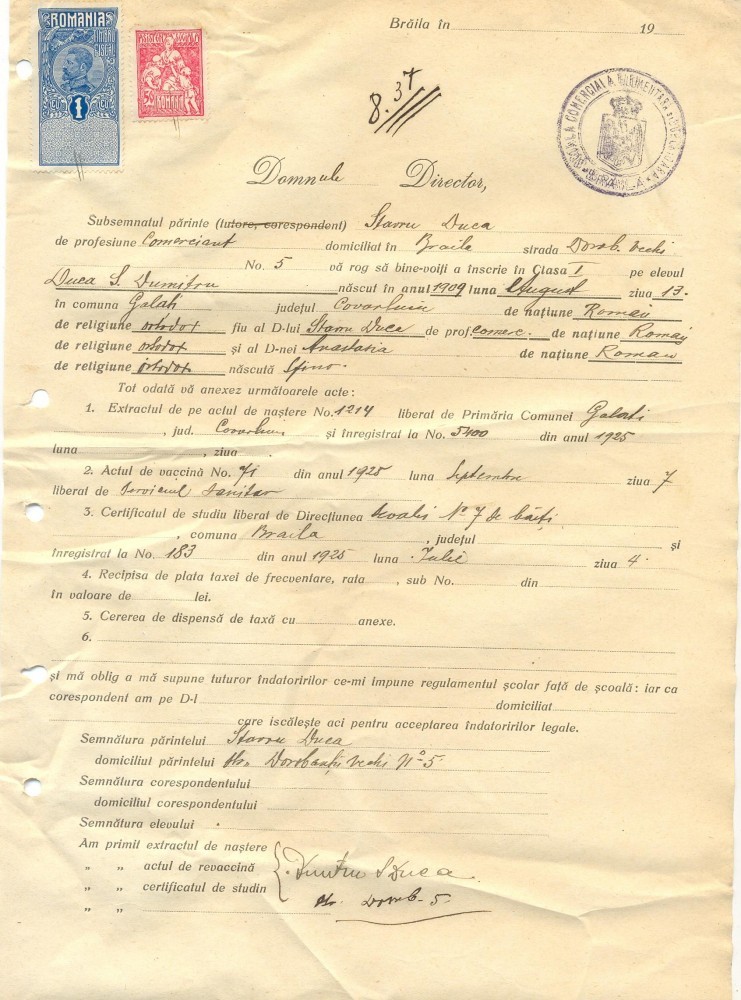 Brăila în 19
ROMANIA
TIMBRU FISCAL
LEU 1 LEU
ASISTENȚA SOCIALĂ
50 ROMANIA
8. 37
ȘCOALA COMERCIALĂ ELEMENTARĂ
BRĂILA
Domnule Director,
Subsemnatul părinte (tutore, corespondent) Stavru Duca
de profesiune Comerciant domiciliat în Braila strada Dorob. Vechi
No. 5 vă rog să bine-voiți a înscrie în Clasa I pe elevul
Duca S. Dumitru născut în anul 1909 luna August ziua 13.
în comuna Galati județul Covorlui de națiune Roman
de religiune ortodox fiu al D-lui Stavru Duca de prof. comerc. de națiune Roman
de religiune ortodox și al D-nei Anastasia de națiune Roman
de religiune ortodox născută
Tot odată vă anexez următoarele acte:
1. Extractul de pe actul de naștere No. 1214 liberat de Primăria Comunei Galati
, jud. Covorlui și înregistrat la No. 5400 din anul 1925
luna , ziua .
2. Actul de vaccină No. 71 din anul 1925 luna Septembre ziua 7
liberat de Serviciul Sanitar
3. Certificatul de studiu liberat de Direcțiunea Scoalei No 7 de băeți
, comuna Braila , județul și
înregistrat la No. 183 din anul 1925 luna Iulie ziua 4.
4. Recipisa de plata taxei de frecventare, rata , sub No. din
în valoare de lei.
5. Cererea de dispensă de taxă cu anexe.
6.
și mă oblig a mă supune tuturor îndatoririlor ce-mi impune regulamentul școlar față de școală: iar ca
corespondent am pe D-l domiciliat
care iscălește aci pentru acceptarea îndatoririlor legale.
Semnătura părintelui Stavru Duca
domiciliul părintelui Str. Dorobanții Vechi No 5
Semnătura corespondentului
domiciliul corespondentului
Semnătura elevului
Am primit extractul de naștere
„ „ actul de revaccină Dumitru S Duca
„ „ certificatul de studiu
„ „ str. Dorob. 5.